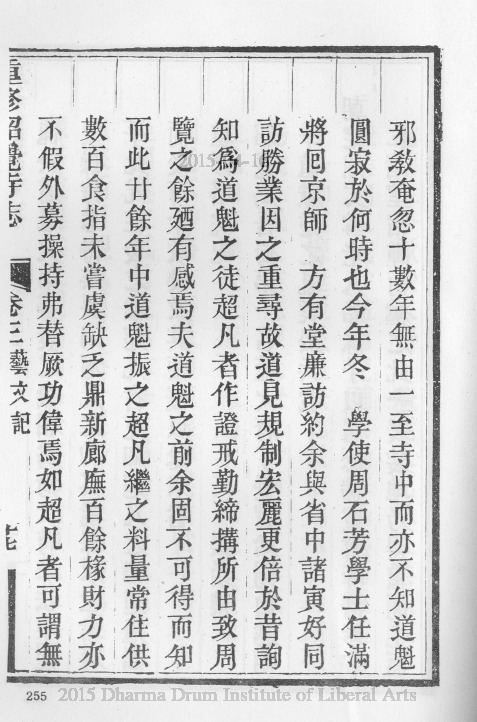 邪敎奄忽十數年無由一至寺中而亦不知道魁
圓寂於何時也今年冬　學使周石芳學士任滿
將回京師　方有堂廉訪約余與省中諸寅好同
訪勝業因之重尋故道見規制宏麗更倍於昔詢
知爲道魁之徒超凡者作證戒勤締搆所由致周
覽之餘廼有感焉夫道魁之前余固不可得而知
而此廿餘年中道魁振之超凡繼之料量常住供
數百食指未嘗虞缺乏鼎新廊廡百餘椽財力亦
不假外募操持弗替厥功偉焉如超凡者可謂無
重修昭覺寺志　卷三　藝文　記　十七
255
2015 Dharma Drum Institute of Liberal Arts